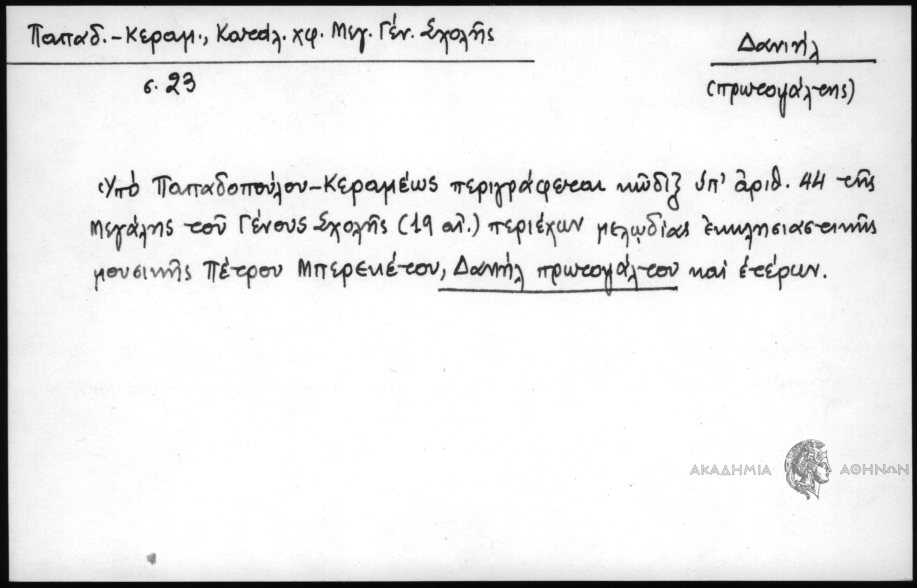 Παπαδ.-Κεραμ., Κατάλ. χφ. Μεγ. Γέν. Σχολῆς
Δανιήλ
σ. 23
(πρωτοψάλτης)
Ὑπό Παπαδοπούλου-Κεραμέως περιγράφεται κῶδιξ ὑπ' ἀριθ. 44 τῆς
Μεγάλης τοῦ Γένους Σχολῆς (19 αἰ.) περιέχων μελῳδίας ἐκκλησιαστικῆς
μουσικῆς Πέτρου Μπερεκέτου, Δανιήλ πρωτοψάλτου καί ἑτέρων.
ΑΚΑΔΗΜΙΑ ΑΘΗΝΩΝ